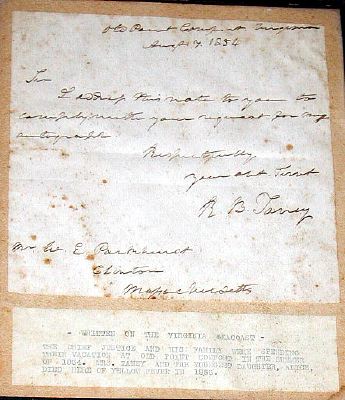 Old Point Comfort Virginia
Augt 7. 1854
Sir
I address this note to you to
comply with your request for my
autograph
Respectfully
your obt Servt
R B Taney
Mr W. E Parkhurst
Clinton
Massachusetts
- WRITTEN ON THE VIRGINIA SEACOAST -
THE CHIEF JUSTICE AND HIS FAMILY WERE SPENDING
THEIR VACATION AT OLD POINT COMFORT IN THE SUMMER
OF 1854. MRS. TANEY AND THE YOUNGEST DAUGHTER, ALICE,
DIED HERE OF YELLOW FEVER IN 1855.